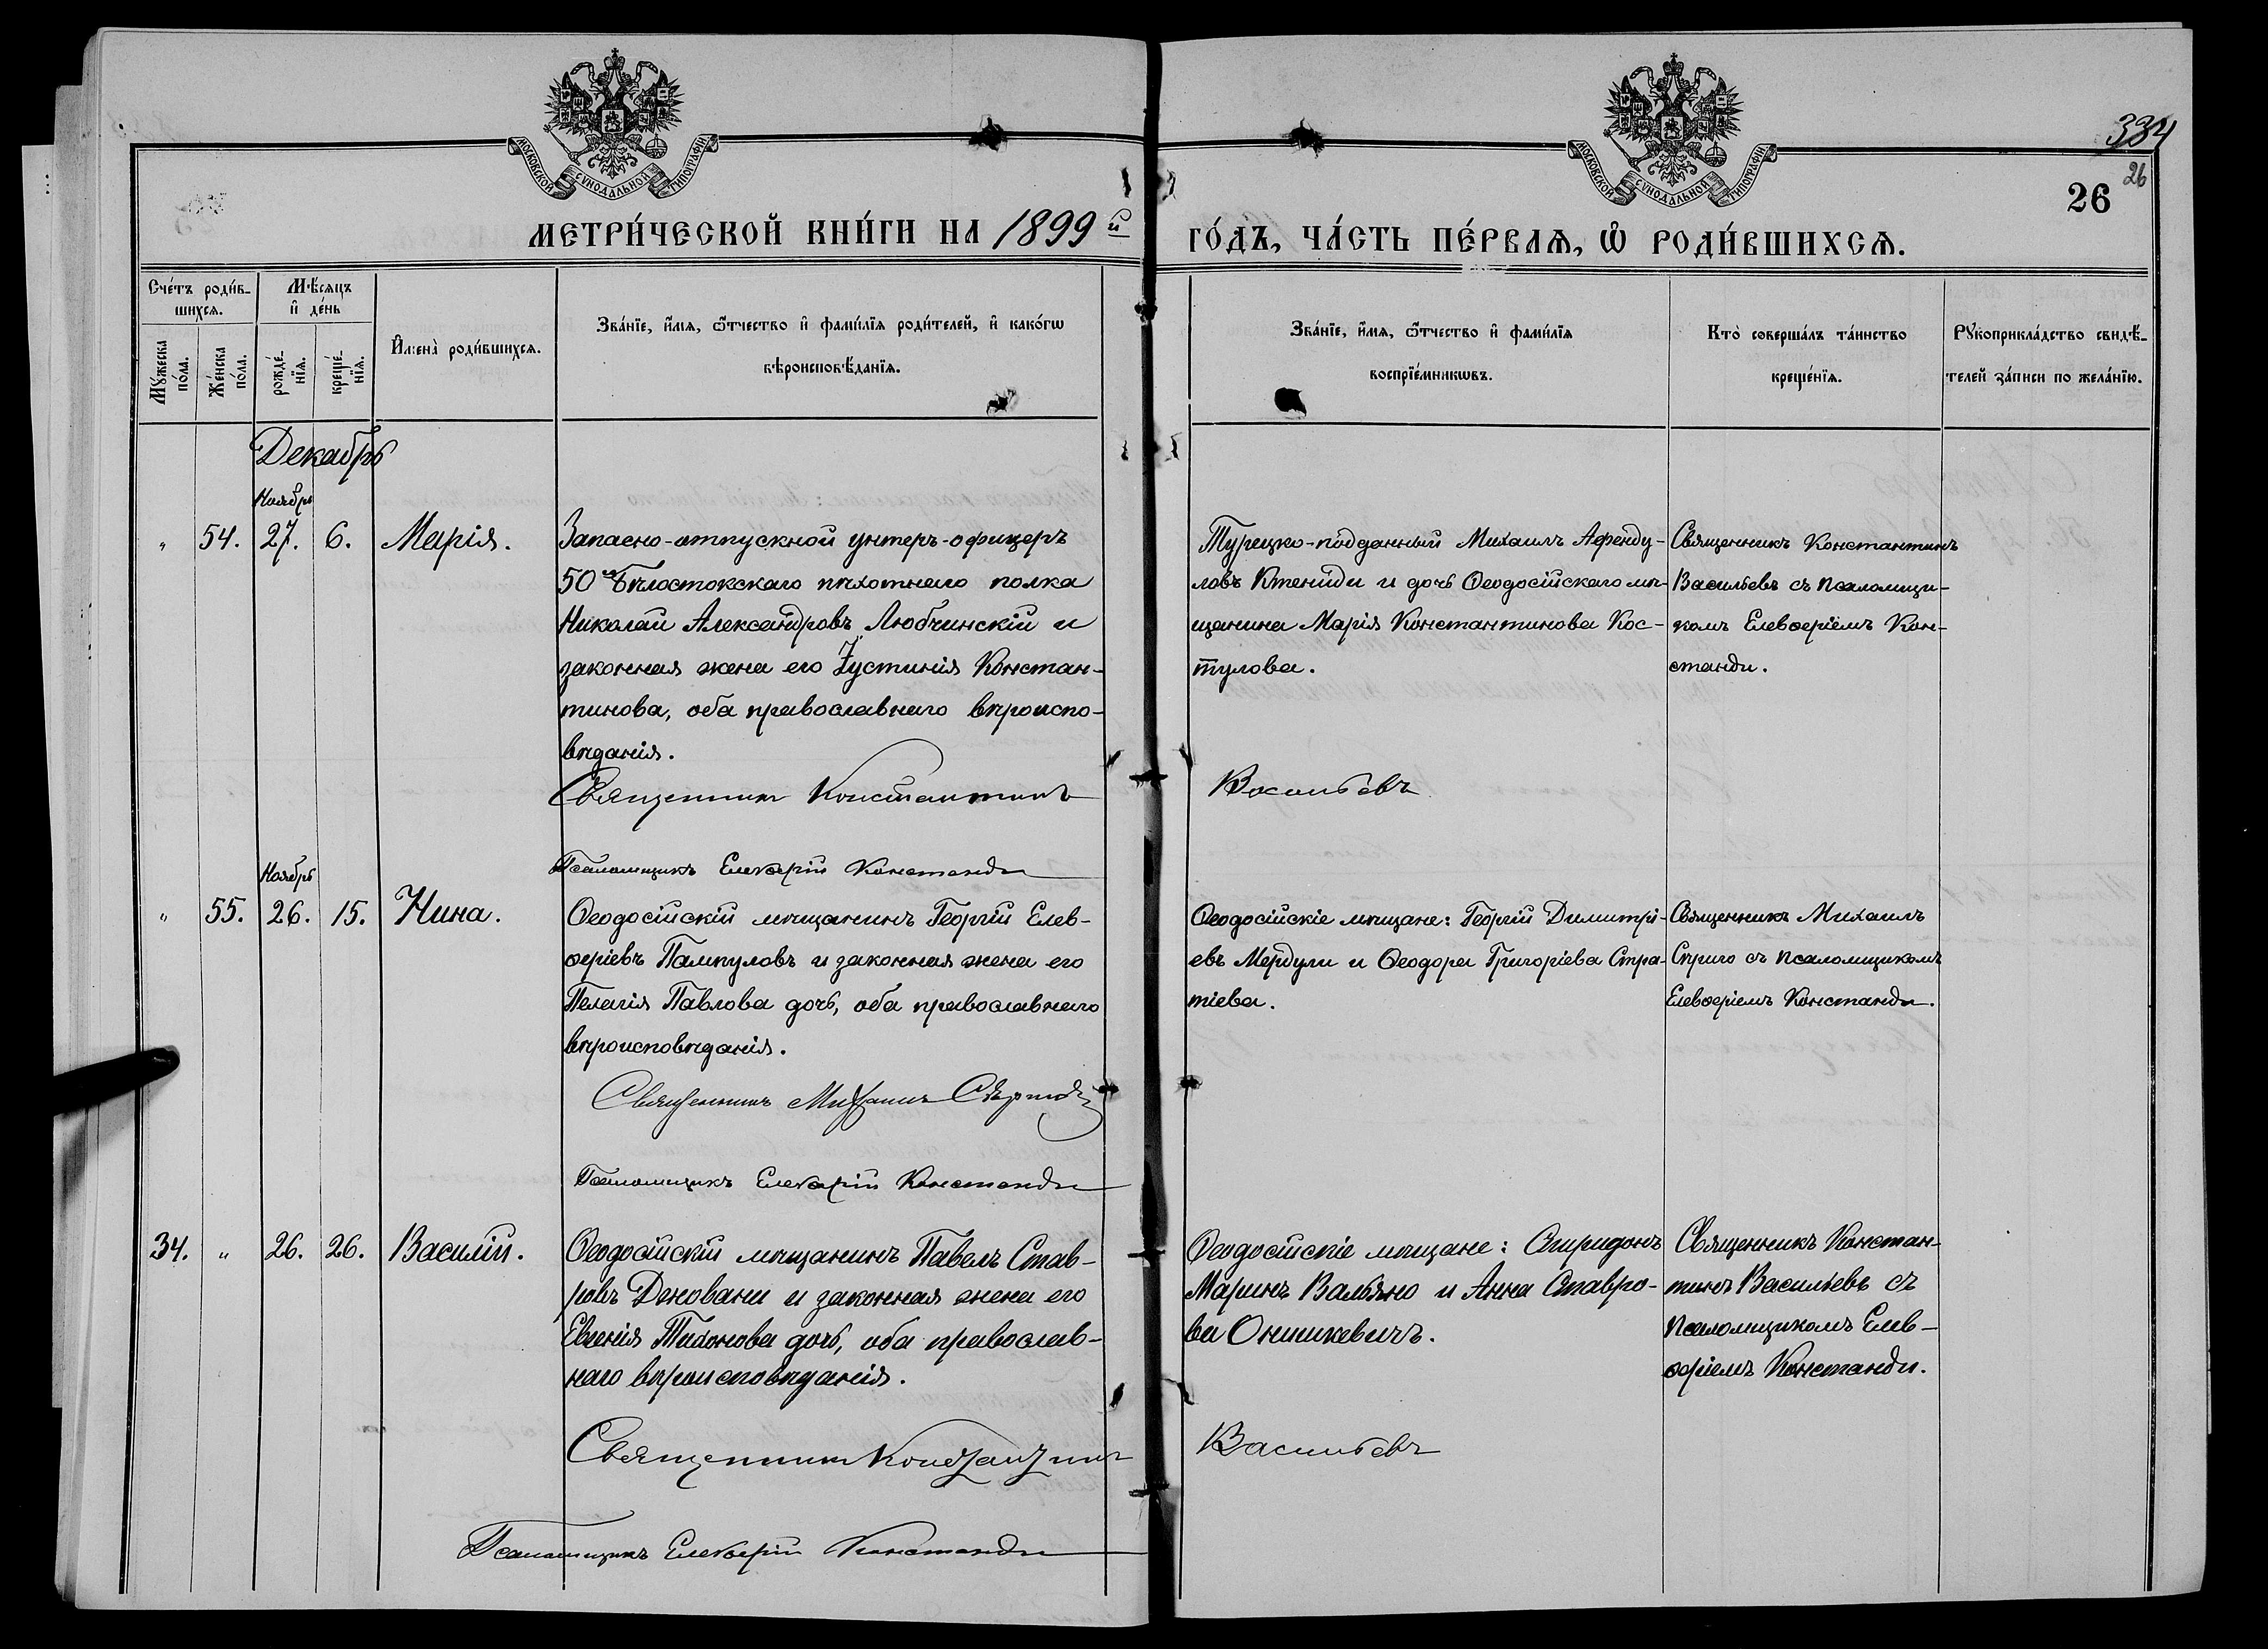 МОСКОВСКОЙ СѴНОДАЛЬНОЙ ТИПОГРАФІИ
МОСКОВСКОЙ СѴНОДАЛЬНОЙ ТИПОГРАФІИ
334
26
26
МЕТРИ́ЧЕСКОЙ КНИ́ГИ НА 1899 й ГО́ДЪ, ЧА́СТЬ ПЕ́РВАѦ, Ѽ РОДИ́ВШИХСѦ.
Сче́тъ роди́в-
шихсѧ.
Мꙋ́жеска
по́ла.
Же́нска
по́ла.
Мѣ́сяцъ
и҆ де́нь
рожде́-
нїѧ.
креще́-
нїѧ.
И҆мена̀ роди́вшихсѧ.
Зва́нїе, и҆́мѧ, ѻ҆́тчество и҆ фами́лїѧ роди́телей, и҆ како́гѡ
вѣроисповѣ́данїѧ.
Зва́нїе, и҆́мѧ, ѻ҆́тчество и҆ фами́лїѧ
воспрїе́мникѡвъ.
Кто̀ соверша́лъ та́инство
креще́нїѧ.
Рꙋкоприкла́дство свидѣ́-
телей за́писи по жела́нїю.
Декабрь
Ноябрь
" 54. 27. 6. Марія.
Запасно-отпускной унтеръ-офицеръ
50го Бѣлостокскаго пѣхотнаго полка
Николай Александровъ Любчинскій и
законная жена его Іустинія Констан-
тинова, оба православнаго вѣроиспо-
вѣданія.
Турецко-подданный Михаилъ Афенду-
ловъ Ктениди и дочь Ѳеодосійскаго мѣ-
щанина Марія Константинова Кос-
тулова.
Священникъ Константинъ
Васильевъ съ псаломщи-
комъ Елевѳеріемъ Кон-
станди.
Священник Константинъ Васильевъ
Псаломщикъ Елевѳерій Констанди
Ноябрь
" 55. 26. 15. Нина.
Ѳеодосійскій мѣщанинъ Георгій Елев-
ѳеріевъ Пампуловъ и законная жена его
Пелагія Павлова дочь, оба православнаго
вѣроисповѣданія.
Ѳеодосійскіе мѣщане: Георгій Димитрі-
евъ Мердули и Ѳеодора Григоріева Стра-
тіева.
Священникъ Михаилъ
съ псаломщикомъ
Елевѳеріемъ Констанди.
Священникъ Михаилъ
Псаломщикъ Елевѳерій Констанди
34. " 26. 26. Василій.
Ѳеодосійскій мѣщанинъ Павелъ Став-
ровъ Дженовани и законная жена его
Евгенія Тихонова дочь, оба православ-
наго вѣроисповѣданія.
Ѳеодосійскіе мѣщане: Спиридонъ
Маринъ Вальяно и Анна Ставро-
ва Онишкевичъ.
Священникъ Констан-
тинъ Васильевъ съ
псаломщикомъ Елев-
ѳеріемъ Констанди.
Священник Константинъ Васильевъ
Псаломщикъ Елевѳерій Констанди